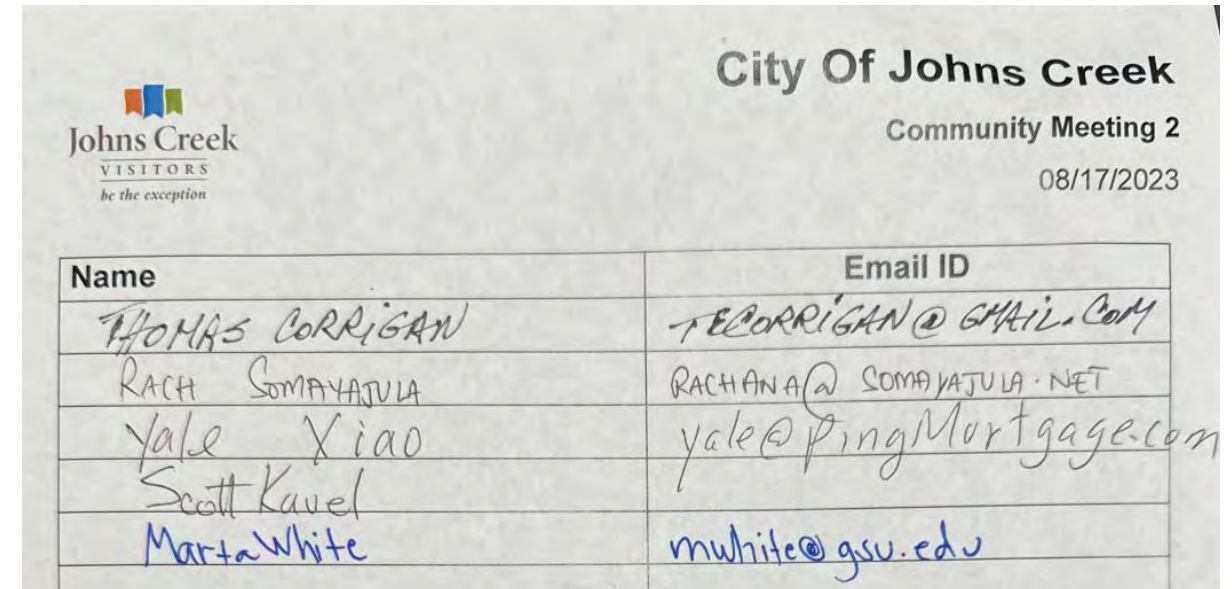 City Of Johns Creek
Johns Creek
VISITORS
be the exception
Community Meeting 2
08/17/2023
Name Email ID
THOMAS CORRIGAN TECORRIGAN@GMAIL.COM
RACH SOMAYAJULA RACHANA@SOMAYAJULA.NET
Yale Xiao yale@PingMortgage.com
Scott Kavel
Marta White mwhite@gsu.edu